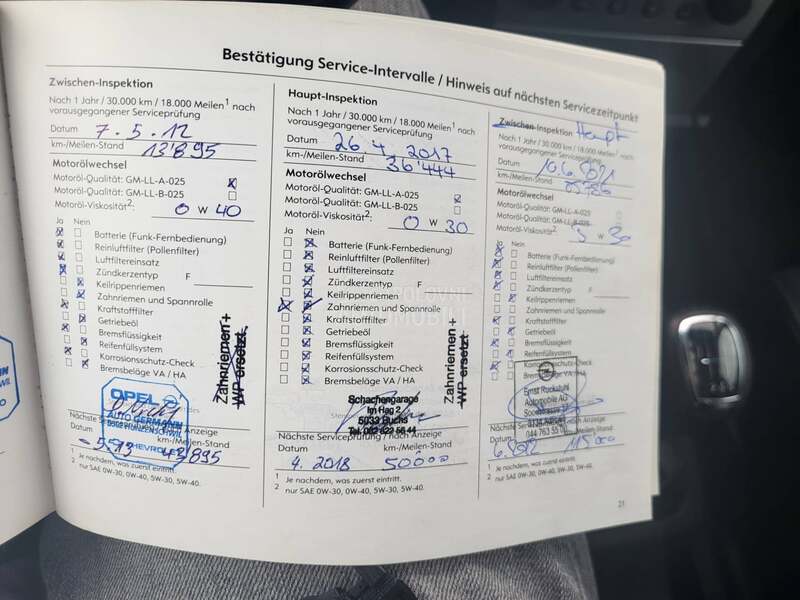 Bestätigung Service-Intervalle / Hinweis auf nächsten Servicezeitpunkt
Zwischen-Inspektion
Nach 1 Jahr / 30.000 km / 18.000 Meilen¹ nach
vorausgegangener Serviceprüfung
Datum 7.5.12
km-/Meilen-Stand 13'895
Motorölwechsel
Motoröl-Qualität: GM-LL-A-025
Motoröl-Qualität: GM-LL-B-025
Motoröl-Viskosität²: 0 W 40
Ja Nein
Batterie (Funk-Fernbedienung)
Reinluftfilter (Pollenfilter)
Luftfiltereinsatz
Zündkerzentyp F
Keilrippenriemen
Zahnriemen und Spannrolle
Kraftstofffilter
Getriebeöl
Bremsflüssigkeit
Reifenfüllsystem
Korrosionsschutz-Check
Bremsbeläge VA / HA
Zahnriemen +
WP ersetzt
OPEL
AUTO GERMANN
5502 HUNZENSCHWIL
CHEVROLET
Nächste Serviceprüfung nach Anzeige
Datum km-/Meilen-Stand
5.13 43'895
¹ Je nachdem, was zuerst eintritt.
² nur SAE 0W-30, 0W-40, 5W-30, 5W-40.
Haupt-Inspektion
Nach 1 Jahr / 30.000 km / 18.000 Meilen¹ nach
vorausgegangener Serviceprüfung
Datum 26.4.2017
km-/Meilen-Stand 36'444
Motorölwechsel
Motoröl-Qualität: GM-LL-A-025
Motoröl-Qualität: GM-LL-B-025
Motoröl-Viskosität²: 0 W 30
Ja Nein
Batterie (Funk-Fernbedienung)
Reinluftfilter (Pollenfilter)
Luftfiltereinsatz
Zündkerzentyp F
Keilrippenriemen
Zahnriemen und Spannrolle
Kraftstofffilter
Getriebeöl
Bremsflüssigkeit
Reifenfüllsystem
Korrosionsschutz-Check
Bremsbeläge VA / HA
Zahnriemen +
WP ersetzt
Schachengarage
Im Hag 2
5033 Buchs
Tel. 062 822 56 44
Nächste Serviceprüfung nach Anzeige
Datum km-/Meilen-Stand
4.2018 50000
¹ Je nachdem, was zuerst eintritt.
² nur SAE 0W-30, 0W-40, 5W-30, 5W-40.
Zwischen-Inspektion Haupt
Nach 1 Jahr / 30.000 km / 18.000 Meilen¹ nach
vorausgegangener Serviceprüfung
Datum
km-/Meilen-Stand
Motorölwechsel
Motoröl-Qualität: GM-LL-A-025
Motoröl-Qualität: GM-LL-B-025
Motoröl-Viskosität²: 5 W 30
Ja Nein
Batterie (Funk-Fernbedienung)
Reinluftfilter (Pollenfilter)
Luftfiltereinsatz
Zündkerzentyp F
Keilrippenriemen
Zahnriemen und Spannrolle
Kraftstofffilter
Getriebeöl
Bremsflüssigkeit
Reifenfüllsystem
Korrosionsschutz-Check
Bremsbeläge VA / HA
Ernst Ruckstuhl
Automobile AG
044 763 55
Nächste Serviceprüfung nach Anzeige
Datum km-/Meilen-Stand
115'000
¹ Je nachdem, was zuerst eintritt.
² nur SAE 0W-30, 0W-40, 5W-30, 5W-40.
21